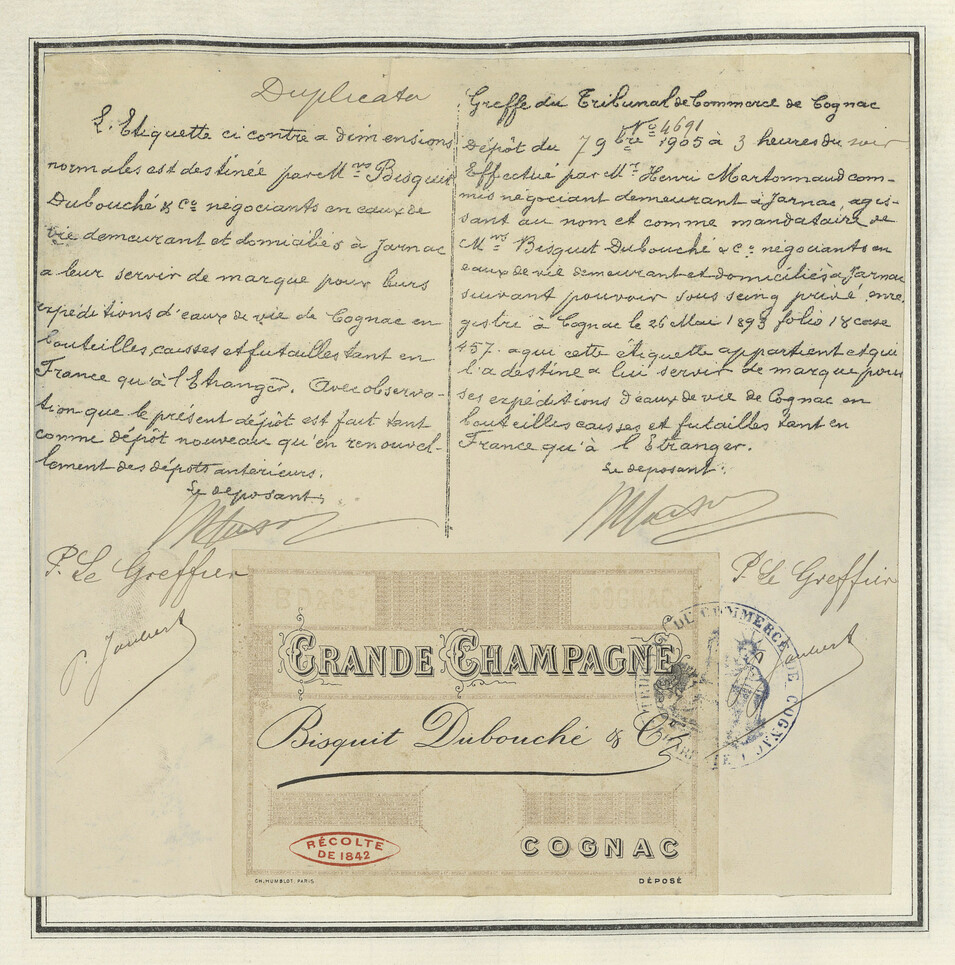 Duplicata
L'Etiquette ci contre a dimensions
normales est destinée par M.rs Bisquit
Dubouché & Co négociants en eaux de
vie demeurant et domiciliés à Jarnac
a leur servir de marque pour leurs
expéditions d'eaux de vie de Cognac en
bouteilles, caisses et futailles tant en
France qu'à l'Etranger. Avec observa-
tion que le présent dépôt est fait tant
comme dépôt nouveau qu'en renouvel-
lement des dépôts antérieurs.
Le deposant,
P. Le Greffier
Greffe du Tribunal de Commerce de Cognac
No 4691
Dépôt du 7 9bre 1905 à 3 heures du soir
Effectué par Mr Henri Martonnaud com-
mis négociant demeurant à Jarnac, agis-
sant au nom et comme mandataire de
Mrs Bisquit Dubouché & Co négociants en
eaux de vie demeurant et domiciliés à Jarnac
suivant pouvoir sous seing privé, enre
gistré à Cognac le 26 Mai 1893 folio 18 case
457. a qui cette étiquette appartient et qui
l'a destine a lui servir de marque pour
ses expéditions d'eaux de vie de Cognac en
bouteilles caisses et futailles tant en
France qu'à l'Etranger.
Le deposant.
P. Le Greffier
GRANDE CHAMPAGNE
Bisquit Dubouché & Co
RÉCOLTE
DE 1842
COGNAC
CH. HUMBLOT. PARIS
DÉPOSÉ
DE COMMERCE DE COGNAC